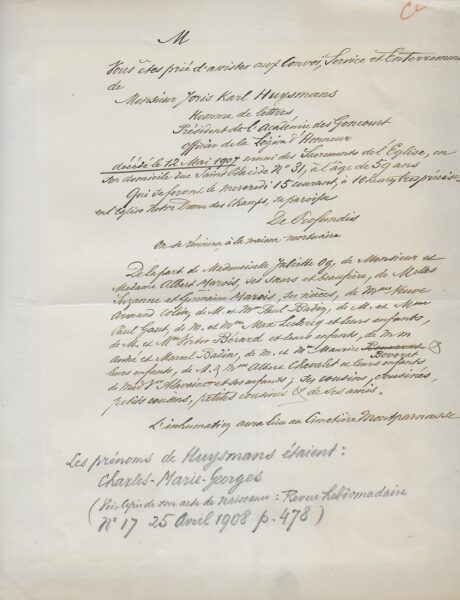 Ce
M
Vous êtes prié d'assister aux Convoi, Service et Enterrement
de
Monsieur Joris Karl Huysmans
Homme de lettres
Président de l'Académie des Goncourt
officier de la Légion d'Honneur
décédé le 12 Mai 1907 muni des Sacrements de l'Église, en
son domicile rue Saint Placide N° 31, à l'âge de 59 ans
Qui se feront le mercredi 15 courant, à 10 heures très précises
en l'Église Notre Dame des Champs, sa paroisse
De Profundis
On se réunira à la maison mortuaire
De la part de Mademoiselle Juliette Og, de Monsieur et
Madame Albert Marois, ses sœurs et beau frère, de Melles
Suzanne et Germaine Marois, ses nièces, de Mme Veuve
Armand Colin, de M. et Mme Paul Badin, de M. et Mme
Paul Gast, de M. et Mme Max Leclerc et leurs enfants,
de M. et Mme Victor Bérard et leurs enfants, de M M
André et Marcel Badin, de M. et Mme Maurice &
Boverat
leurs enfants, de M. & Mme Albert Chevalet et leurs enfants
de et ses enfants; ses cousins, cousines,
petits cousins, petites cousines & de ses amis.
L'inhumation aura lieu au Cimetière Montparnasse
Les prénoms de Huysmans étaient:
Charles-Marie-Georges
(Voir copie de son acte de naissance: Revue hebdomadaire
N° 17 25 Avril 1908 p. 478)